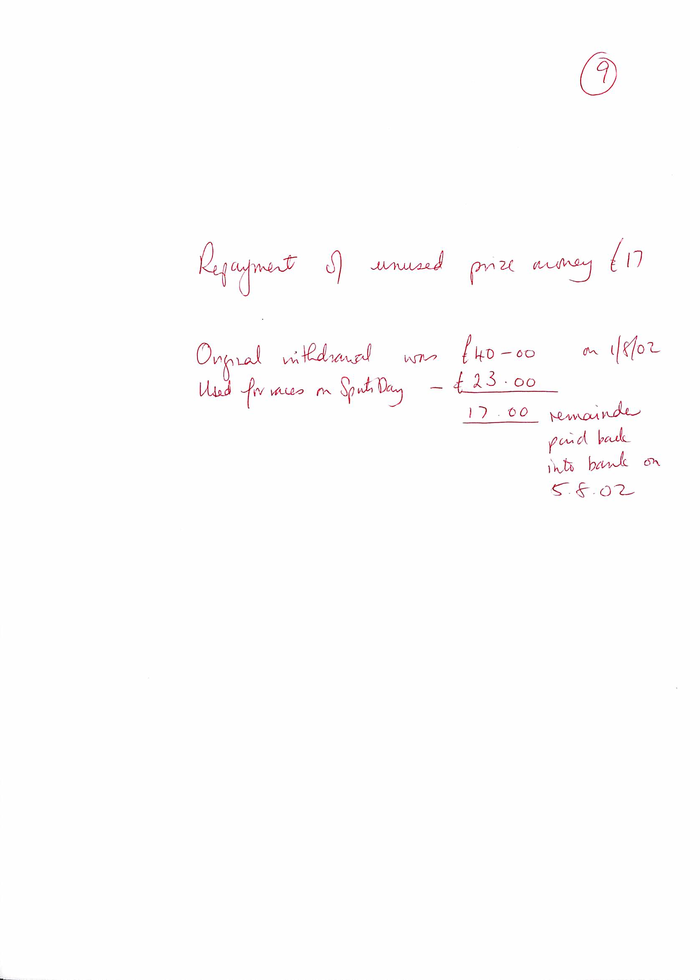 9
Repayment of unused prize money £17
Original withdrawal was £40-00 on 1/8/02
Used for races on Sports Day - £23.00
17.00 remainder
paid back
into bank on
5.8.02